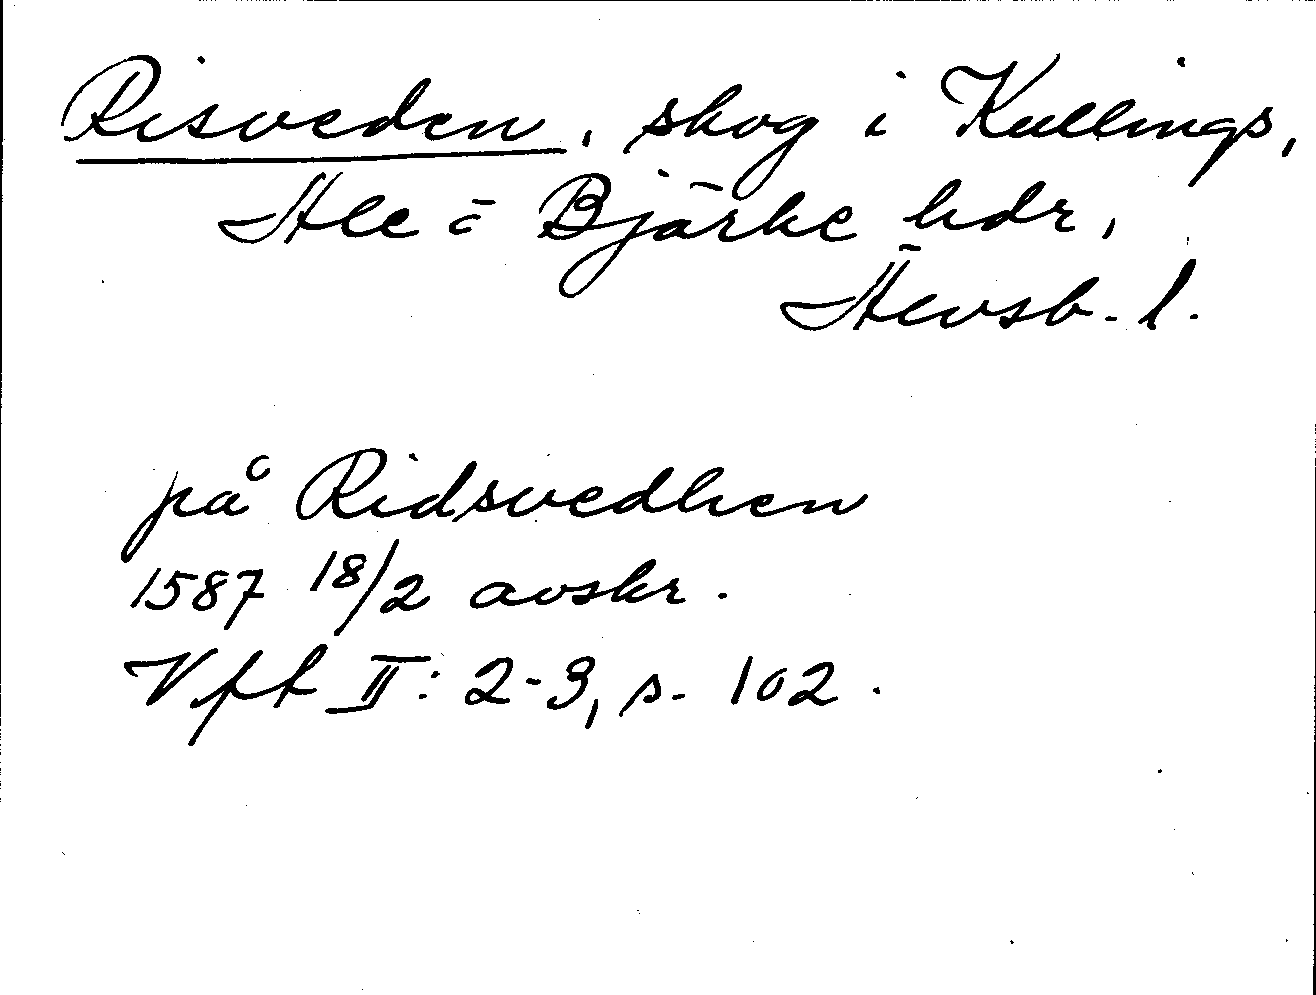 Risveden, skog i Kullings,
Ale o Bjärke hdr,
Älvsb. l.
på Ridsvedhen
1587 18/2 avskr.
Vft II: 2-3, s. 102.